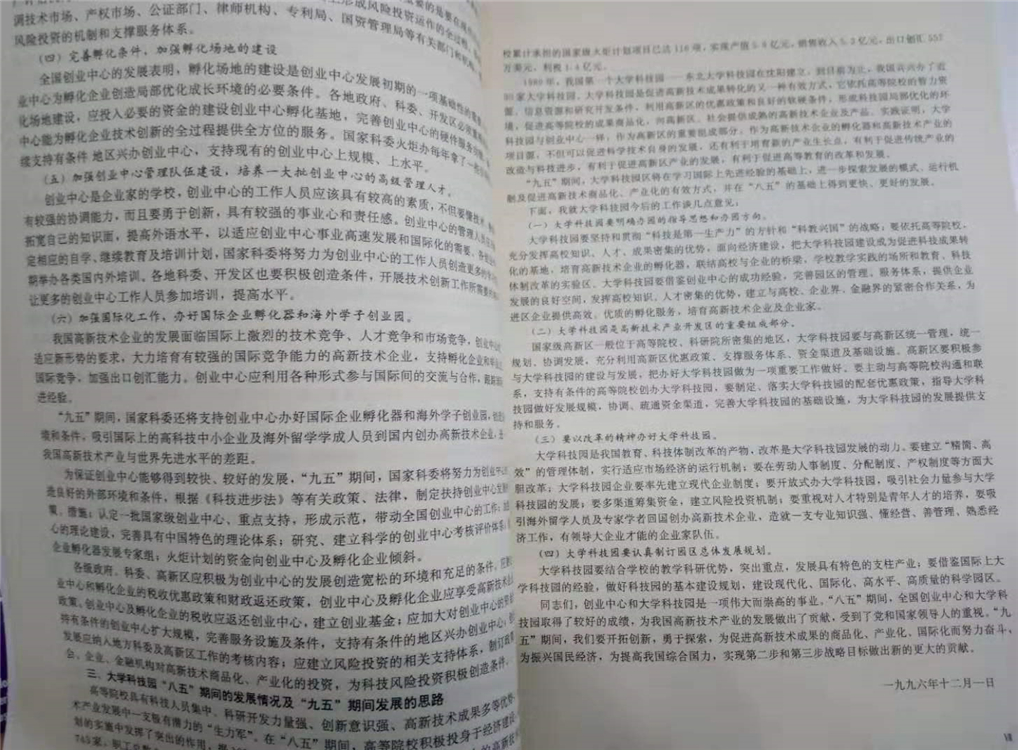 调技术市场、产权市场、公证部门、律师机构、专利局、国资管理局等有关部门和机
风险投资的机制和支撑服务体系。
(四)完善孵化条件,加强孵化场地的建设
全国创业中心的发展表明,孵化场地的建设是创业中心发展初期的一项基础性的
业中心为孵化企业创造局部优化成长环境的必要条件。各地政府、科委、开发区必须
化场地建设,应投入必要的资金的建设创业中心孵化基地,完善创业中心的硬件服务
中心能为孵化企业技术创新的全过程提供全方位的服务。国家科委火炬办每年拿了一
续支持有条件 地区兴办创业中心,支持现有的创业中心上规模、上水平。
(五)加强创业中心管理队伍建设,培养一大批创业中心的高级管理人才。
创业中心是企业家的学校,创业中心的工作人员应该具有较高的素质,不但要懂技术
有较强的协调能力,而且要勇于创新,具有较强的事业心和责任感。创业中心的管理人员
拓宽自己的知识面,提高外语水平,以适应创业中心事业高速发展和国际化的需要。各
定相应的自学、继续教育及培训计划,国家科委将努力为创业中心的工作人员创造更多
期举办各类国内外培训。各地科委、开发区也要积极创造条件,开展技术创新工作所需要
让更多的创业中心工作人员参加培训,提高水平。
(六)加强国际化工作、办好国际企业孵化器和海外学子创业园。
我国高新技术企业的发展面临国际上激烈的技术竞争、人才竞争和市场竞争,创业中心
适应新形势的要求,大力培育有较强的国际竞争能力的高新技术企业,支持孵化企业和
国际竞争,加强出口创汇能力。创业中心应利用各种形式参与国际间的交流与合作,
进经验。
“九五”期间,国家科委还将支持创业中心办好国际企业孵化器和海外学子创业园,
境和条件,吸引国际上的高科技中小企业及海外留学学成人员到国内创办高新技术企业,
我国高新技术产业与世界先进水平的差距。
为保证创业中心能够得到较快、较好的发展,“九五”期间,国家科委将努力为创业中心
造良好的外部环境和条件,根据《科技进步法》等有关政策、法律,制定扶持创业中心
策、措施;认定一批国家级创业中心、重点支持,形成示范,带动全国创业中心的工作;
心的理论建设,完善具有中国特色的理论体系;研究、建立科学的创业中心考核评价体系
企业孵化器发展专家组;火炬计划的资金向创业中心及孵化企业倾斜。
各级政府、科委、高新区应积极为创业中心的发展创造宽松的环境和充足的条件,应
业中心和孵化企业的税收优惠政策和财政返还政策,创业中心及孵化企业应享受高新技术
政策,创业中心及孵化企业的税收应返还创业中心,建立创业基金;应加大对创业中心的
持有条件的创业中心扩大规模,完善服务设施及条件,支持有条件的地区兴办创业中心,
发展应纳入地方科委及高新区工作的考核内容;应建立风险投资的相关支持体系,制订
会、企业、金融机构对高新技术商品化、产业化的投资,为科技风险投资积极创造条件。
三、大学科技园“八五”期间的发展情况及“九五”期间发展的思路
高等院校具有科技人员集中、科研开发力量强、创新意识强、高新技术成果多等优势
术产业发展中一支极有潜力的“生力军”。在“八五”期间,高等院校积极投身于经济建设
划的实施中发挥了突出的作用,
743家,职工总数
校累计承担的国家级火炬计划项目已达116项,实现产值5.8亿元,销售收入5.2亿元,出口创汇552
万美元,利税1.4亿元。
1989年,我国第一个大学科技园——东北大学科技园在沈阳建立,到目前为止,我国共兴办了近
30家大学科技园。大学科技园是促进高新技术成果转化的又一种有效方式,它依托高等院校的智力资
源、信息资源和研究开发条件,利用高新区的优惠政策和良好的软硬条件,形成科技园局部优化的环
境,促进高等院校的成果商品化,向高新区、社会提供成熟的高新技术企业及产品。实践证明,大学
科技园与创业中心一样,作为高新区的重要组成部分,作为高新技术企业的孵化器和高新技术产业的
项目源,不但可以促进科学技术自身的发展,还有利于培育新的产业生长点,有利于促进传统产业的
改造与科技进步,有利于促进高新区产业的发展,有利于促进高等教育的改革和发展。
“九五”期间,大学科技园区将在学习国际上先进经验的基础上,进一步探索发展的模式、运行机
制及促进高新技术商品化、产业化的有效方式,并在“八五”的基础上得到更快、更好的发展。
下面,我就大学科技园今后的工作谈几点意见:
(一)大学科技园要明确办园的指导思想和办园方向。
大学科技园要坚持和贯彻“科技是第一生产力”的方针和“科教兴国”的战略,要依托高等院校,
充分发挥高校知识、人才、成果密集的优势,面向经济建设,把大学科技园建设成为促进科技成果转
化的基地,培育高新技术企业的孵化器,联结高校与企业的桥梁,学校教学实践的场所和教育、科技
体制改革的实验区。大学科技园要借鉴创业中心的成功经验,完善园区的管理、服务体系,提供企业
发展的良好空间,发挥高校知识、人才密集的优势,建立与高校、企业界、金融界的紧密合作关系,为
进区企业提供高效、优质的孵化服务,培育高新技术企业及企业家。
(二)大学科技园是高新技术产业开发区的重要组成部分。
国家级高新区一般位于高等院校、科研院所密集的地区,大学科技园要与高新区统一管理,统一
规划、协调发展,充分利用高新区优惠政策、支撑服务体系、资金渠道及基础设施。高新区要积极参
与大学科技园的建设与发展,把办好大学科技园做为一项重要工作做好。要主动与高等院校沟通和联
系,支持有条件的高等院校创办大学科技园,要制定、落实大学科技园的配套优惠政策,指导大学科
技园做好发展规模,协调、疏通资金渠道,完善大学科技园的基础设施,为大学科技园的发展提供支
持和服务。
(三)要以改革的精神办好大学科技园。
大学科技园是我国教育、科技体制改革的产物,改革是大学科技园发展的动力。要建立“精简、高
效”的管理体制,实行适应市场经济的运行机制;要在劳动人事制度、分配制度、产权制度等方面大
胆改革;大学科技园企业要率先建立现代企业制度;要开放式办大学科技园,吸引社会力量参与大学
科技园的发展;要多渠道筹集资金,建立风险投资机制;要重视对人才特别是青年人才的培养,要吸
引海外留学人员及专家学者回国创办高新技术企业,造就一支专业知识强、懂经营、善管理、熟悉经
济工作,有领导大企业才能的企业家队伍。
(四)大学科技园要认真制订园区总体发展规划。
大学科技园要结合学校的教学科研优势,突出重点,发展具有特色的支柱产业;要借鉴国际上大
学科技园的经验,做好科技园的基本建设规划,建设现代化、国际化、高水平、高质量的科学园区。
同志们,创业中心和大学科技园是一项伟大而崇高的事业,“八五”期间,全国创业中心和大学科
技园取得了较好的成绩,为我国高新技术产业的发展做出了贡献,受到了党和国家领导人的重视。“九
五”期间,我们要开拓创新,勇于探索,为促进高新技术成果的商品化、产业化、国际化而努力奋斗,
为振兴国民经济,为提高我国综合国力,实现第二步和第三步战略目标做出新的更大的贡献。
一九九六年十二月一日
VII